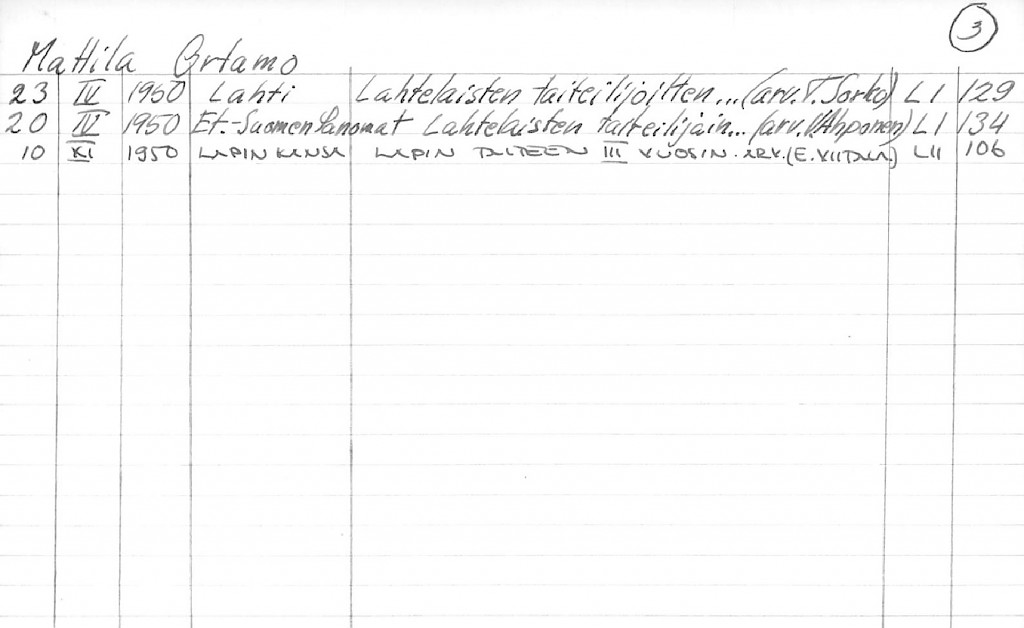 3
Mattila Ortamo
23 IV 1950 Lahti Lahtelaisten taiteilijoitten... (arv. T. Sorko) LI 129
20 IV 1950 Et.-Suomen Sanomat Lahtelaisten taiteilijain... (arv. V Ahponen) LI 134
10 XI 1950 LAPIN KANSA LAPIN TAITEEN III VUOSIN. ARV. (E. VIITALA) LII 106